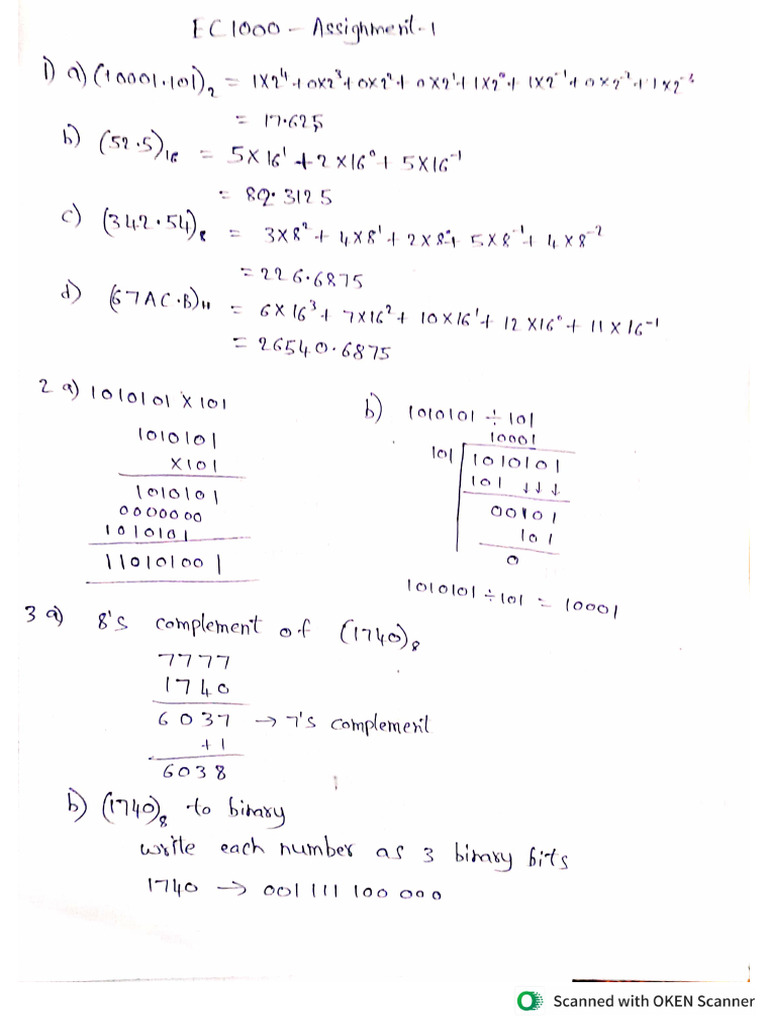 EC1000 - Assignment-1
1) a) (10001.101)₂ = 1X2⁴+0X2³+0X2²+0X2¹+1X2⁰+1X2⁻¹+0X2⁻²+1X2⁻³
= 17.625
b) (52.5)₁₆ = 5X16¹+2X16⁰+5X16⁻¹
= 82.3125
c) (342.54)₈ = 3X8²+4X8¹+2X8⁰+5X8⁻¹+4X8⁻²
= 226.6875
d) (67AC.B)₁₁ = 6X16³+7X16²+10X16¹+12X16⁰+11X16⁻¹
= 26540.6875
2 a) 1010101 X 101
1010101
X101
1010101
0000000
1010101
110101001
b) 1010101 ÷ 101
10001
101 1010101
101 ↓↓↓
00101
101
0
1010101 ÷ 101 = 10001
3 a) 8's complement of (1740)₈
7777
1740
6037 → 7's complement
+1
6038
b) (1740)₈ to binary
write each number as 3 binary bits
1740 → 001 111 100 000
Scanned with OKEN Scanner